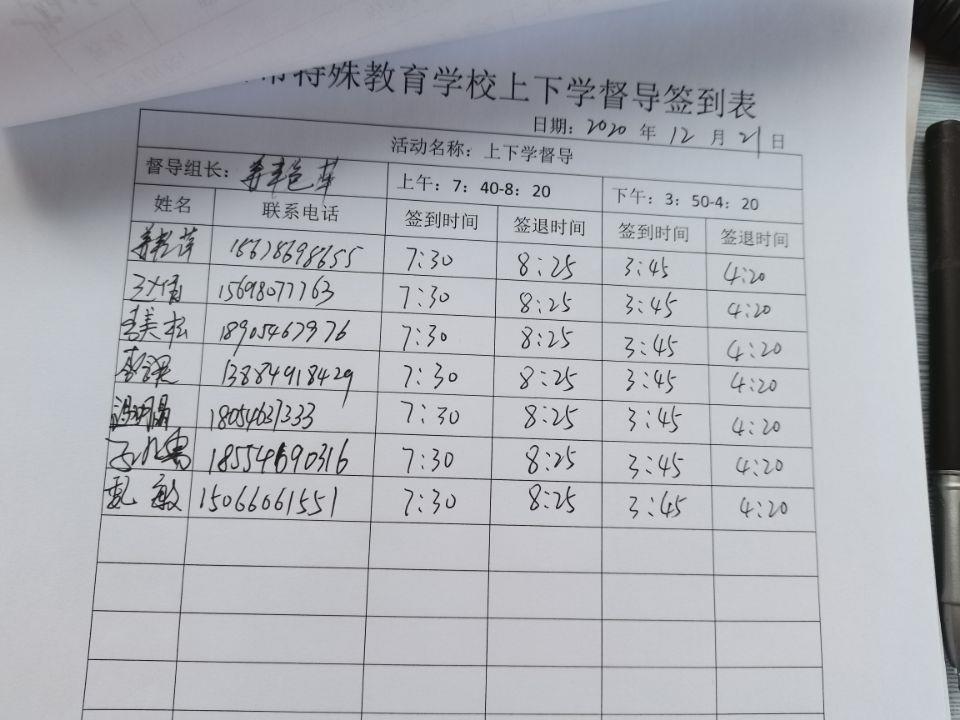 市特殊教育学校上下学督导签到表
日期：2020 年 12 月 21 日
活动名称：上下学督导
督导组长： 上午：7：40-8：20 下午：3：50-4：20
姓名 联系电话 签到时间 签退时间 签到时间 签退时间
7:30 8:25 3:45 4:20
15698077763 7:30 8:25 3:45 4:20
李美松 18905467976 7:30 8:25 3:45 4:20
13884918429 7:30 8:25 3:45 4:20
18054637333 7:30 8:25 3:45 4:20
18554690316 7:30 8:25 3:45 4:20
甄敏 15066061551 7:30 8:25 3:45 4:20